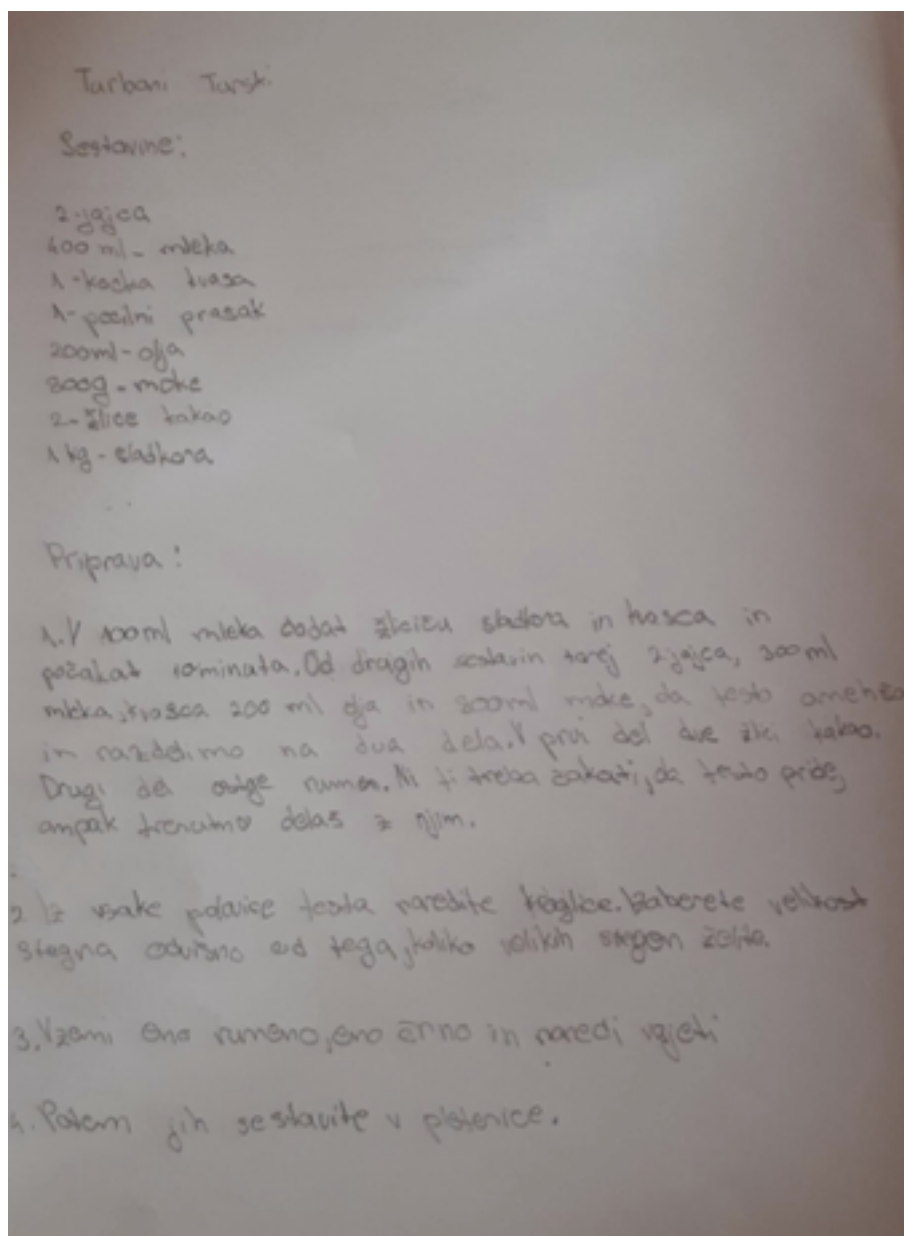 Turbani Turski
Sestavine:
2-jajca
400 ml - mleka
1-kocka kvasa
1-pecilni prasak
200ml-olja
800g-moke
2-žlice kakao
1 kg-sladkora
Priprava:
1. V 100ml mleka dodat sladkora in kvasca in
počakat 10minuta. Od drugih sestavin torej 2jajca, 300ml
mleka, kvasca 200 ml olja in 800ml moke, da testo
in razdelimo na dva dela. V prvi del dve žlici kakao.
Drugi del rumen. Ni ti treba čakati, da testo pride,
ampak trenutno delaš z njim.
2 Iz vsake polovice testa naredite kroglice. Izaberete velikost
stegna odvisno od tega, koliko velikih stegen želite.
3. Vzemi eno rumeno, eno črno in naredi
4. Potem jih sestavite v pletenice.